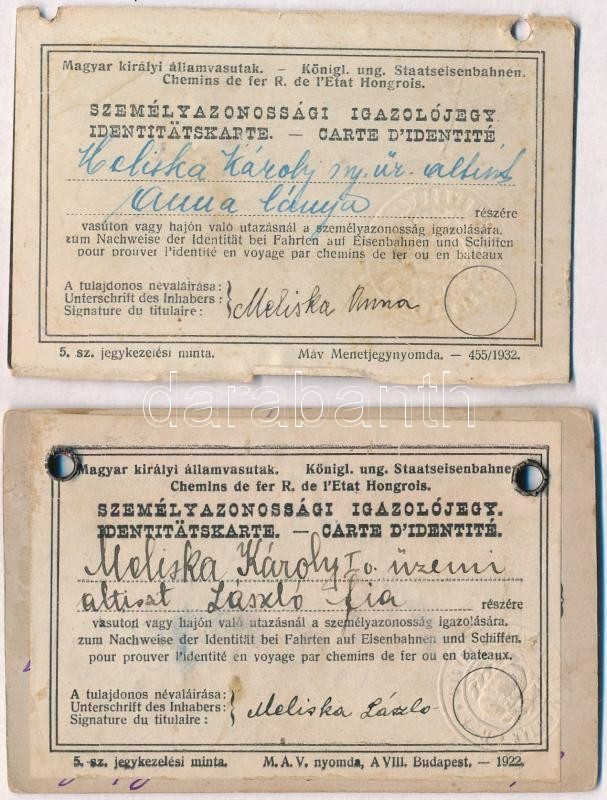 Magyar királyi államvasutak. — Königl. ung. Staatseisenbahnen.
Chemins de fer R. de l'Etat Hongrois.
SZEMÉLYAZONOSSÁGI IGAZOLÓJEGY
IDENTITÄTSKARTE. — CARTE D'IDENTITÉ
Meliska Károly ny. űr. altiszt
Anna lánya részére
vasúton vagy hajón való utazásnál a személyazonosság igazolására.
zum Nachweise der Identität bei Fahrten auf Eisenbahnen und Schiffen
pour prouver l'identité en voyage par chemins de fer ou en bateaux
A tulajdonos névaláirása:
Unterschrift des Inhabers:
Signature du titulaire:
Meliska Anna
5. sz. jegykezelési minta. Máv Menetjegynyomda. — 455/1932.
darabanth
Magyar királyi államvasutak. Königl. ung. Staatseisenbahnen
Chemins de fer R. de l'Etat Hongrois.
SZEMÉLYAZONOSSÁGI IGAZOLÓJEGY.
IDENTITÄTSKARTE. — CARTE D'IDENTITÉ.
Meliska Károly I o. üzemi
altiszt László fia részére
vasuton vagy hajón való utazásnál a személyazonosság igazolására.
zum Nachweise der Identität bei Fahrten auf Eisenbahnen und Schiffen.
pour prouver l'identité en voyage par chemins de fer ou en bateaux.
A tulajdonos névaláirása:
Unterschrift des Inhabers:
Signature du titulaire:
Meliska László
5. sz. jegykezelési minta. M. A. V. nyomda, A VIII. Budapest, — 1922.